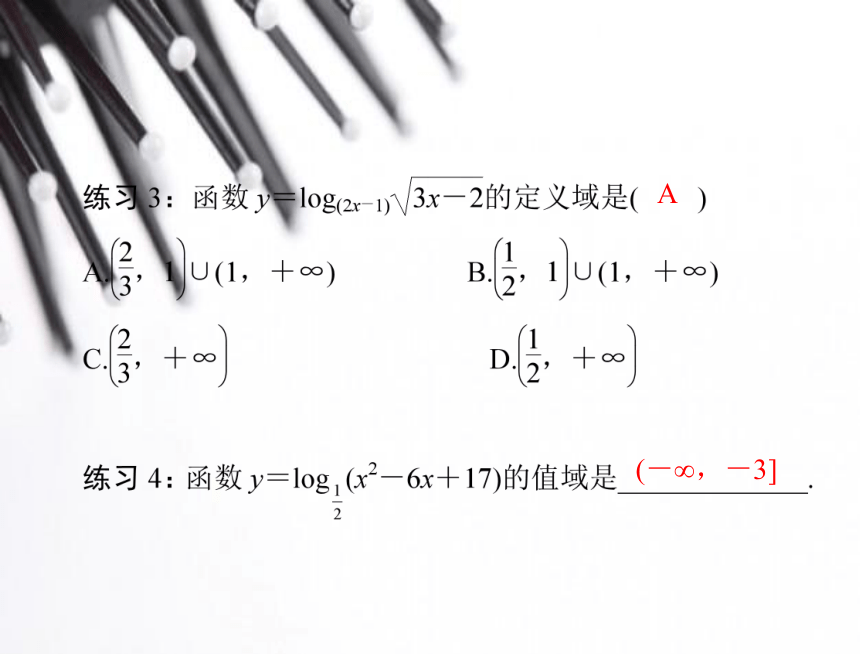 练习 3：函数 y＝log(2x－1)√(3x－2)的定义域是( A )
A.(2/3，1)∪(1，＋∞) B.(1/2，1)∪(1，＋∞)
C.(2/3，＋∞) D.(1/2，＋∞)
练习 4：函数 y＝log1/2(x²－6x＋17)的值域是(－∞，－3].